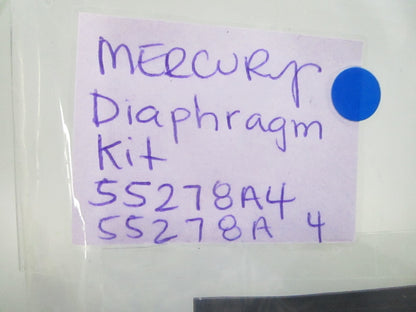 MERCURY
Diaphragm
Kit
55278A4
55278A 4